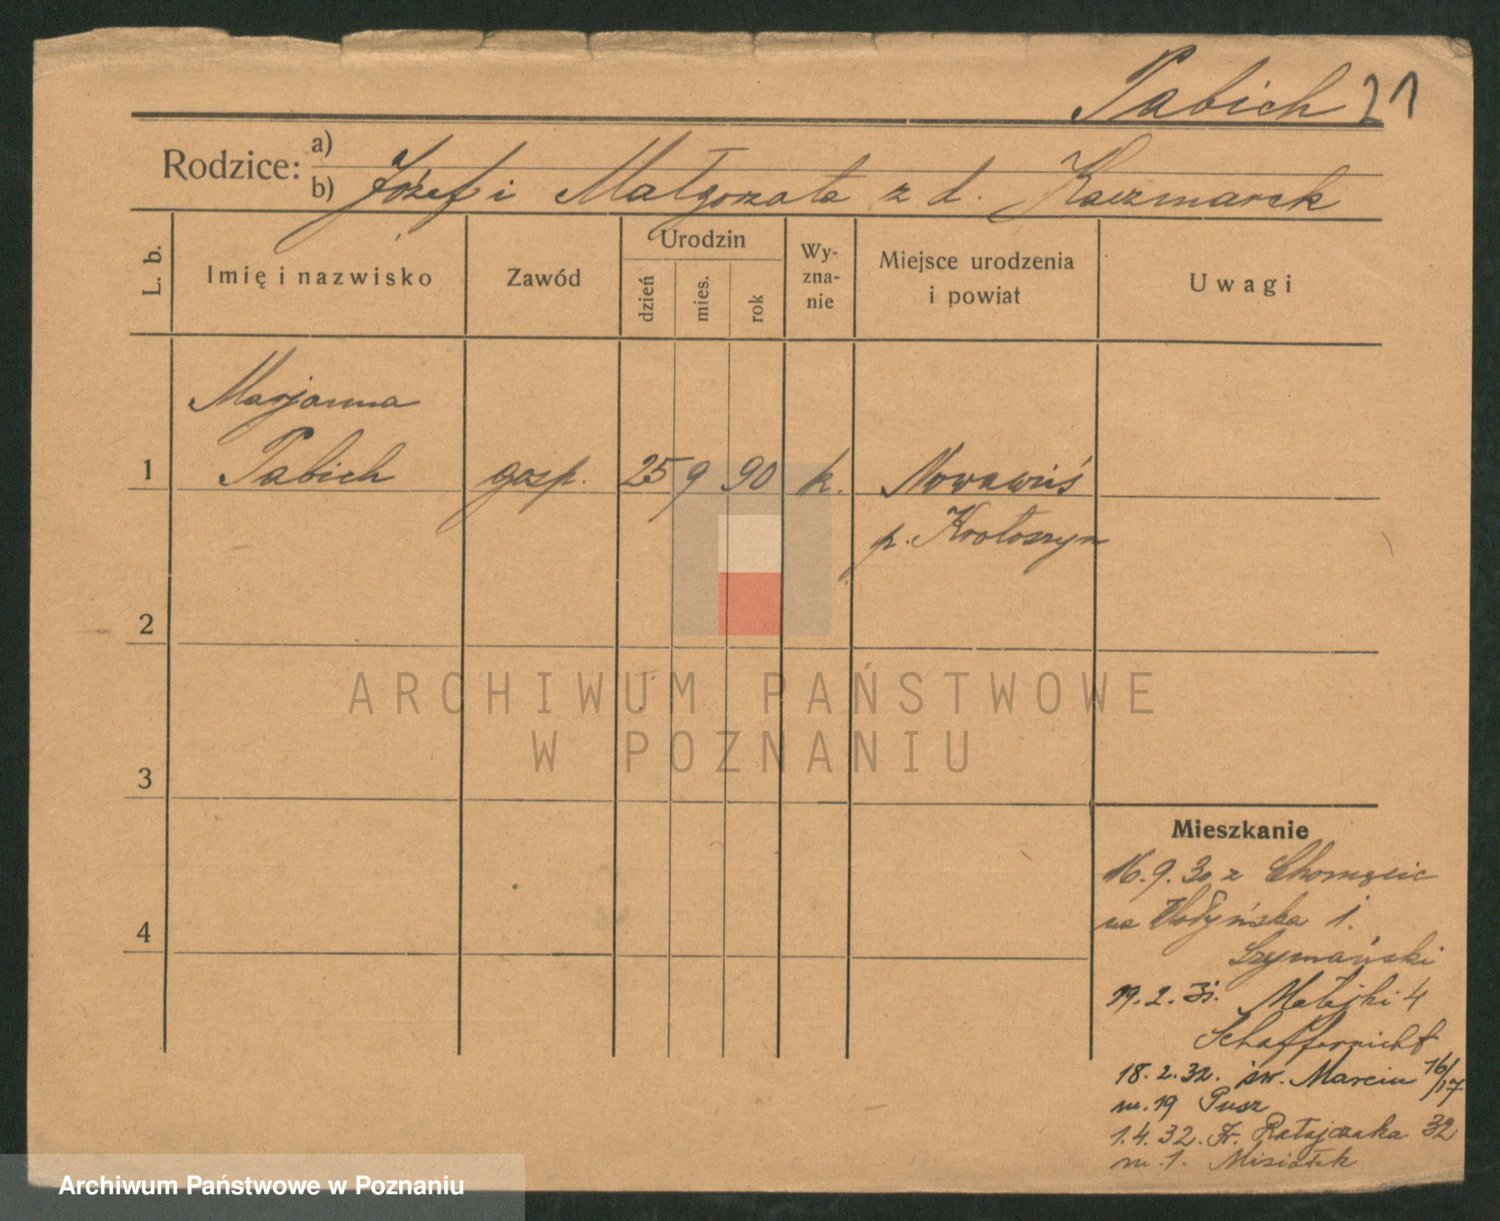 Tabich 21
Rodzice:
a)
b) Józef i Małgorzata z d. Kaczmarek
L. b.
Imię i nazwisko
Zawód
Urodzin
dzień
mies.
rok
Wy-
zna-
nie
Miejsce urodzenia
i powiat
Uwagi
Marjanna
1 Tabich gosp. 25 9 90 k. Nowawieś
p. Krotoszyn
2
ARCHIWUM PAŃSTWOWE
W POZNANIU
3
4
Mieszkanie
16.9.30 z
na Wołyńska 1.
Szymański
19.2.31. Matejki 4
Schaffernicht
18.2.32. św. Marcin 16/17
m. 19 Pusz
1.4.32. Fr. Ratajczaka 32
m. 1. Misiołek
Archiwum Państwowe w Poznaniu